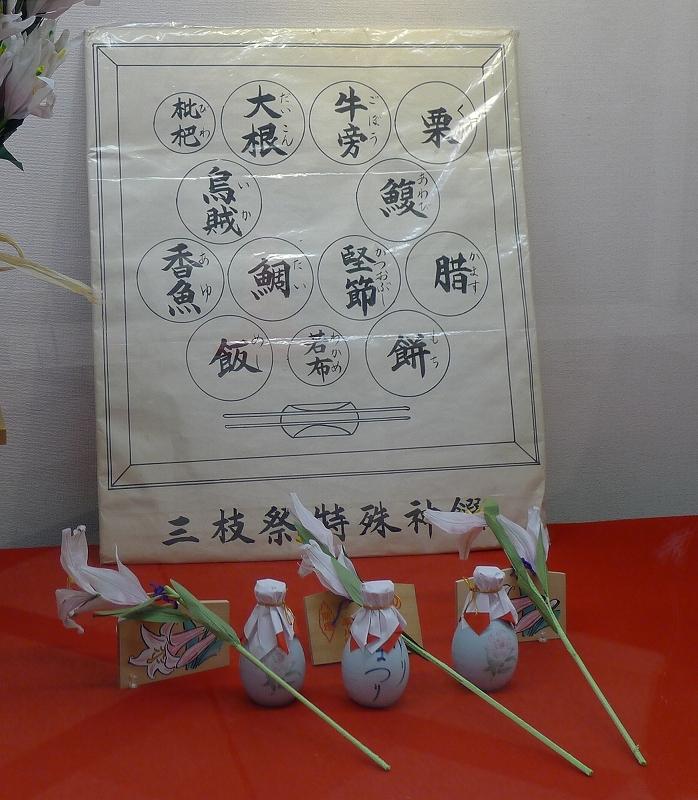 枇杷 びわ 大根 だいこん 牛旁 ごぼう 栗 くり
烏賊 いか 鰒 あわび
香魚 あゆ 鯛 たい 堅節 かつおぶし 腊 かます
飯 めし 若布 わかめ 餅 もち
三枝祭特殊神饌
り
まつり